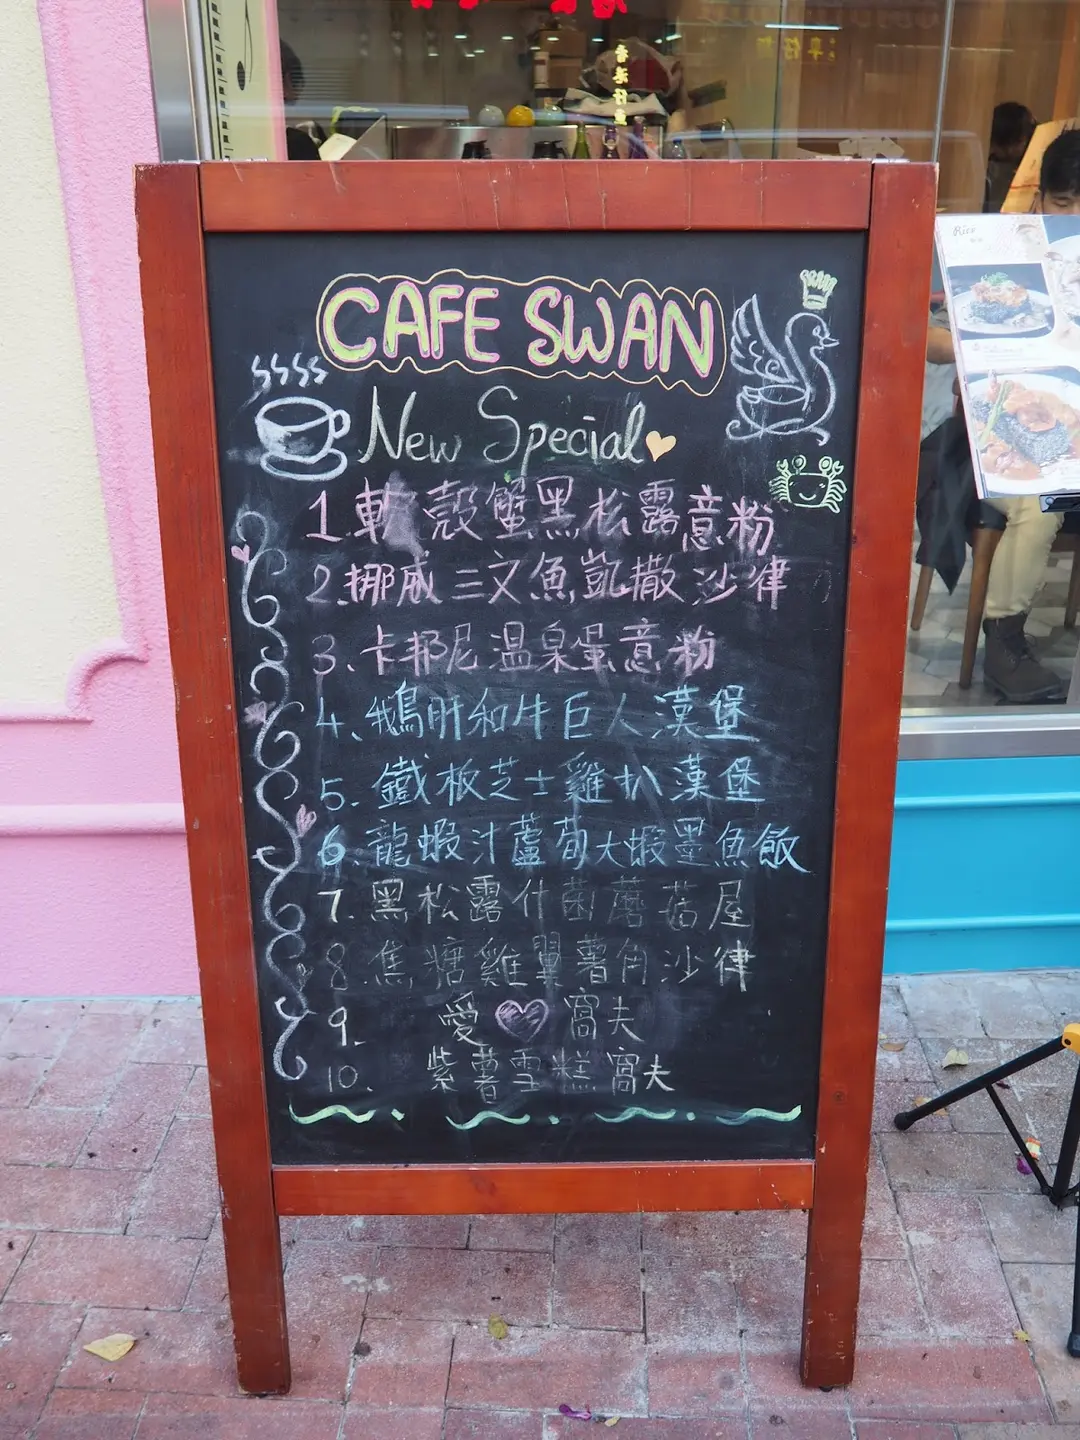 香港仔
CAFE SWAN
New Special
1.軟殼蟹黑松露意粉
2.挪威三文魚凱撒沙律
3.卡邦尼溫泉蛋意粉
4.鵝肝和牛巨人漢堡
5.鐵板芝士雞扒漢堡
6.龍蝦汁蘆荀大蝦墨魚飯
7.黑松露什菌蘑菇屋
8.焦糖雞翼薯角沙律
9.愛窩夫
10.紫薯雪糕窩夫
Rice